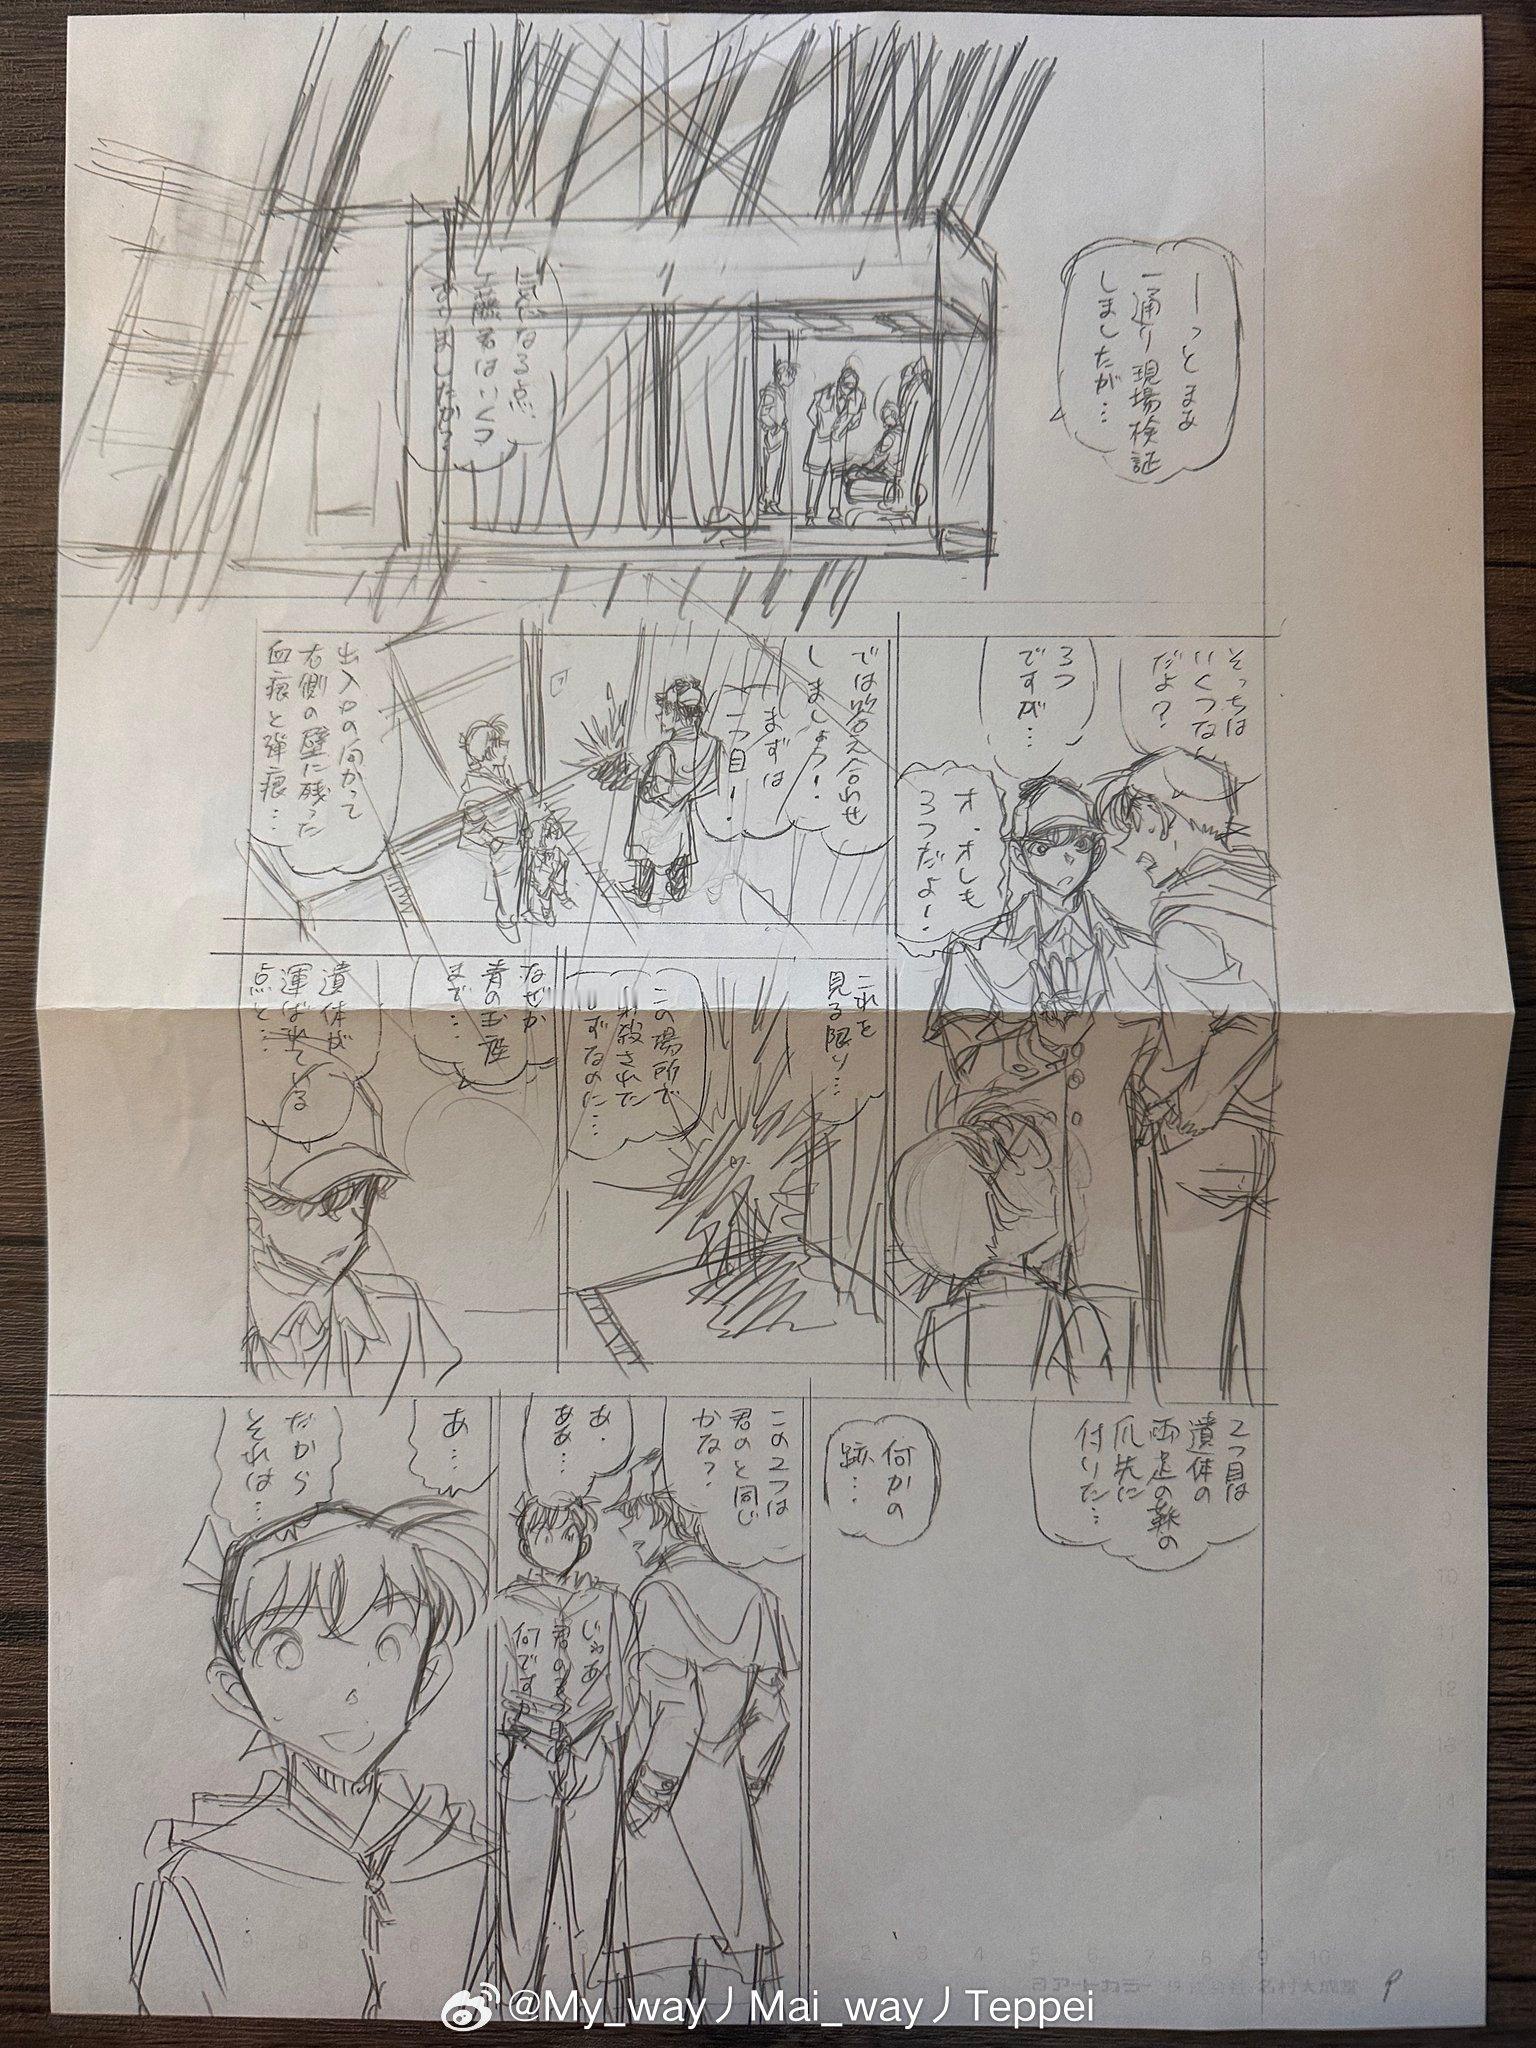 ーっとまあ
一通り現場検証
しましたが…
気になる点、
工藤君はいくつ
ありましたか？
そっちは
いくつな
だよ？
3つ
ですが…
オ、オレも
3つだよ！
では答え合わせ
しましょう！
まずは
一つ目！
出入口の向かって
右側の壁に残った
血痕と弾痕…
これを
見る限り…
この場所で
射殺された
はずなのに…
なぜか
青の玉座
まで…
遺体が
運ばれている
点と…
2つ目は
遺体の
両足の靴の
爪先に
付いた…
何かの
跡…
この2つは
君のと同じ
かな？
あ、
ああ…
じゃあ
君の3つ目は
何ですか？
あ…
だから
それは…
9
@My_way丿Mai_way丿Teppei